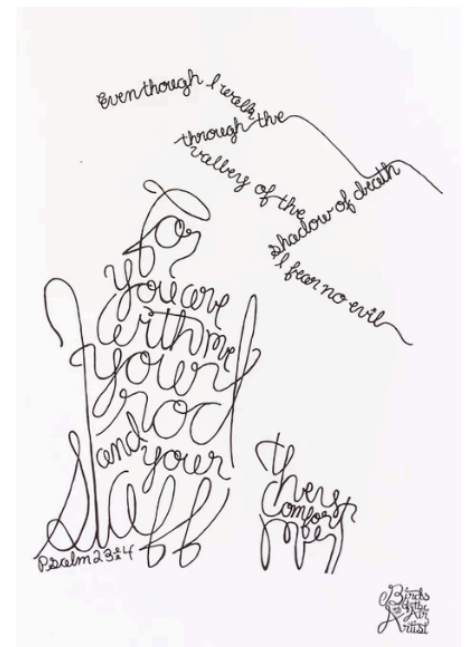 Even though I walk
through the
valley of the
shadow of death
I fear no evil
for
you are
with me
your
rod
and your
staff
they
comfort
me
Psalm 23:4
Birds
of the
Air
Artist